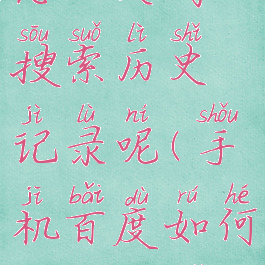 sōu suǒ lì shǐ
搜索历史
jì lù ní shǒu
记录呢(手
jī bǎi dù rú hé
机百度如何